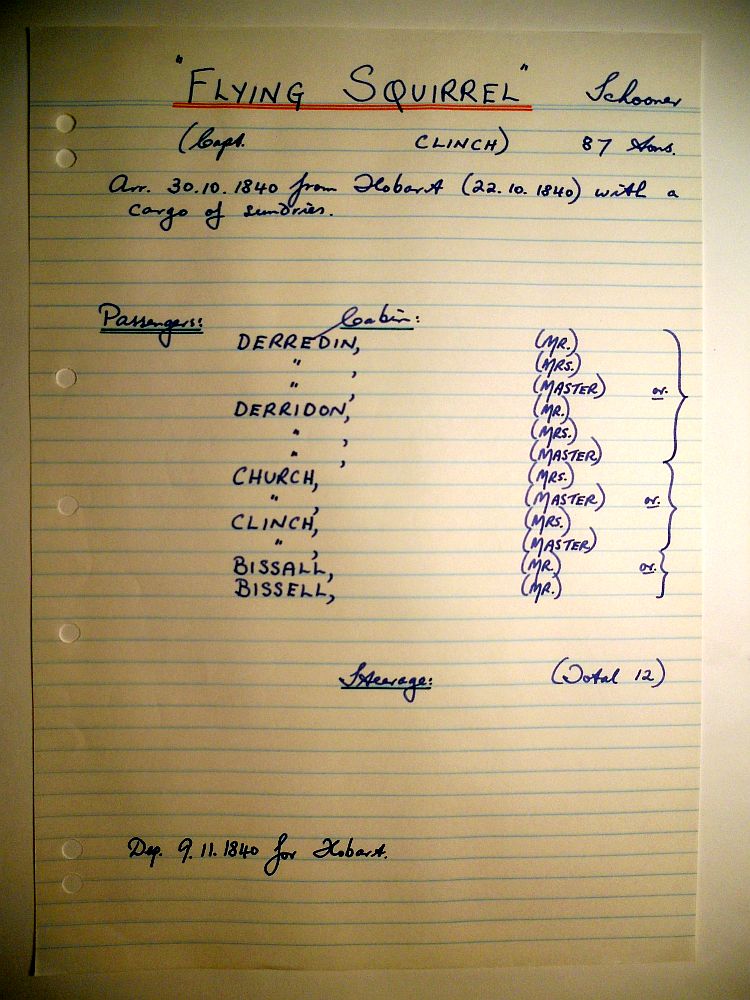 "FLYING SQUIRREL" Schooner
(Capt. CLINCH) 87 tons.
Arr. 30.10.1840 from Hobart (22.10.1840) with a
cargo of sundries.
Passengers: Cabin:
DERREDIN, (MR.)
" , (MRS.)
" , (MASTER) or.
DERRIDON, (MR.)
" , (MRS.)
" , (MASTER)
CHURCH, (MRS.)
" , (MASTER) or.
CLINCH, (MRS.)
" , (MASTER)
BISSALL, (MR.) or.
BISSELL, (MR.)
Steerage: (Total 12)
Dep. 9.11.1840 for Hobart.